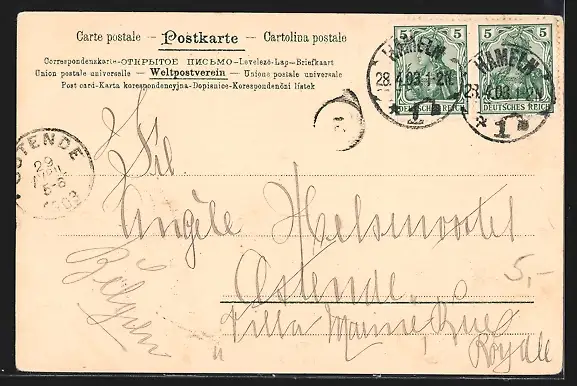 Carte postale – Postkarte – Cartolina postale
Correspondenzkarte-ОТКРЫТОЕ ПИСЬМО-Levelező-Lap-Briefkaart
Union postale universelle – Weltpostverein – Unione postale universale
Post card-Karta korespondencyjna-Dopisnice-Korespondenční lístek
5 5 5 5
DEUTSCHES REICH DEUTSCHES REICH
HAMELN
28.4.03.1-2N.
* 1 b
HAMELN
28.4.03.1-2N.
* 1 b
OSTENDE
29
5-6
1903
Frl.
Angèle
Ostende
Villa Marine, Rue
Royale
Belgien
5,-